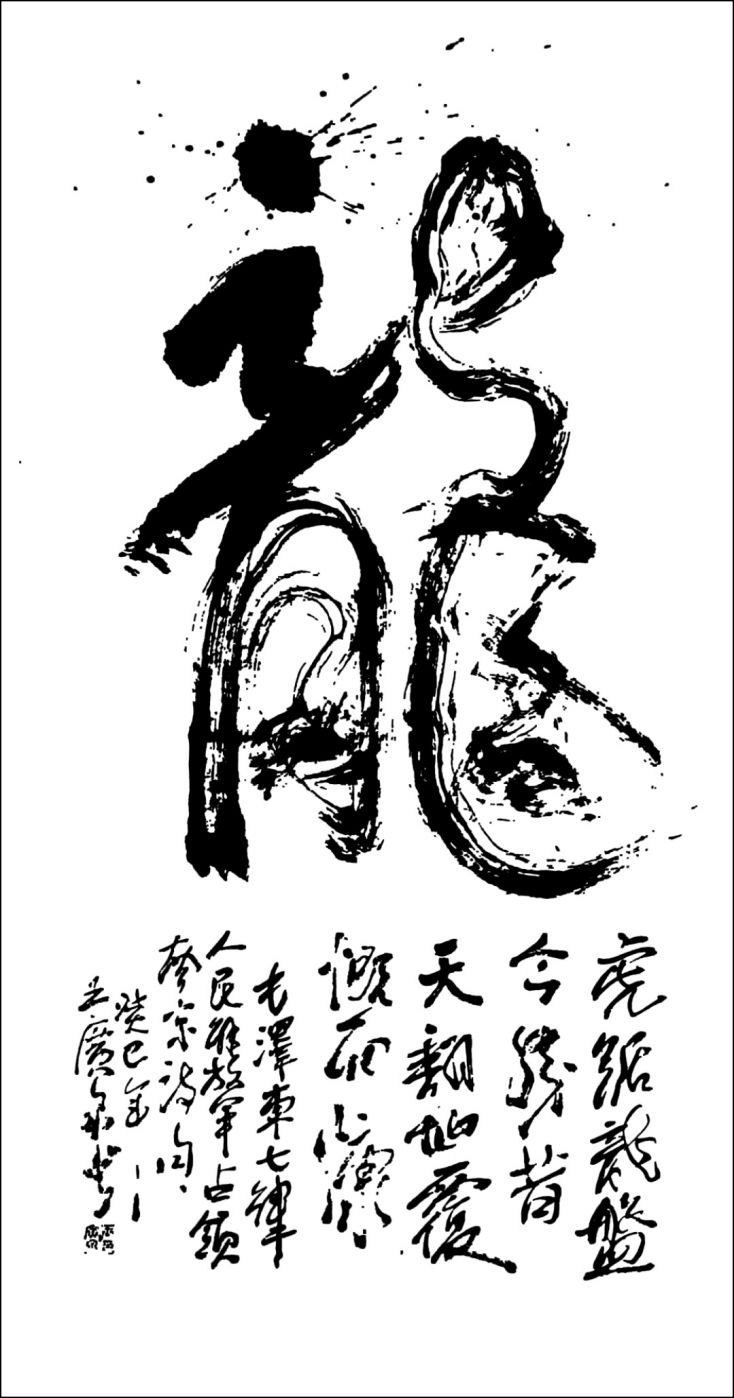 龍
虎踞龍盤
今勝昔
天翻地覆
慨而慷
毛澤東七律
人民解放軍占領
南京詩句
癸巳年